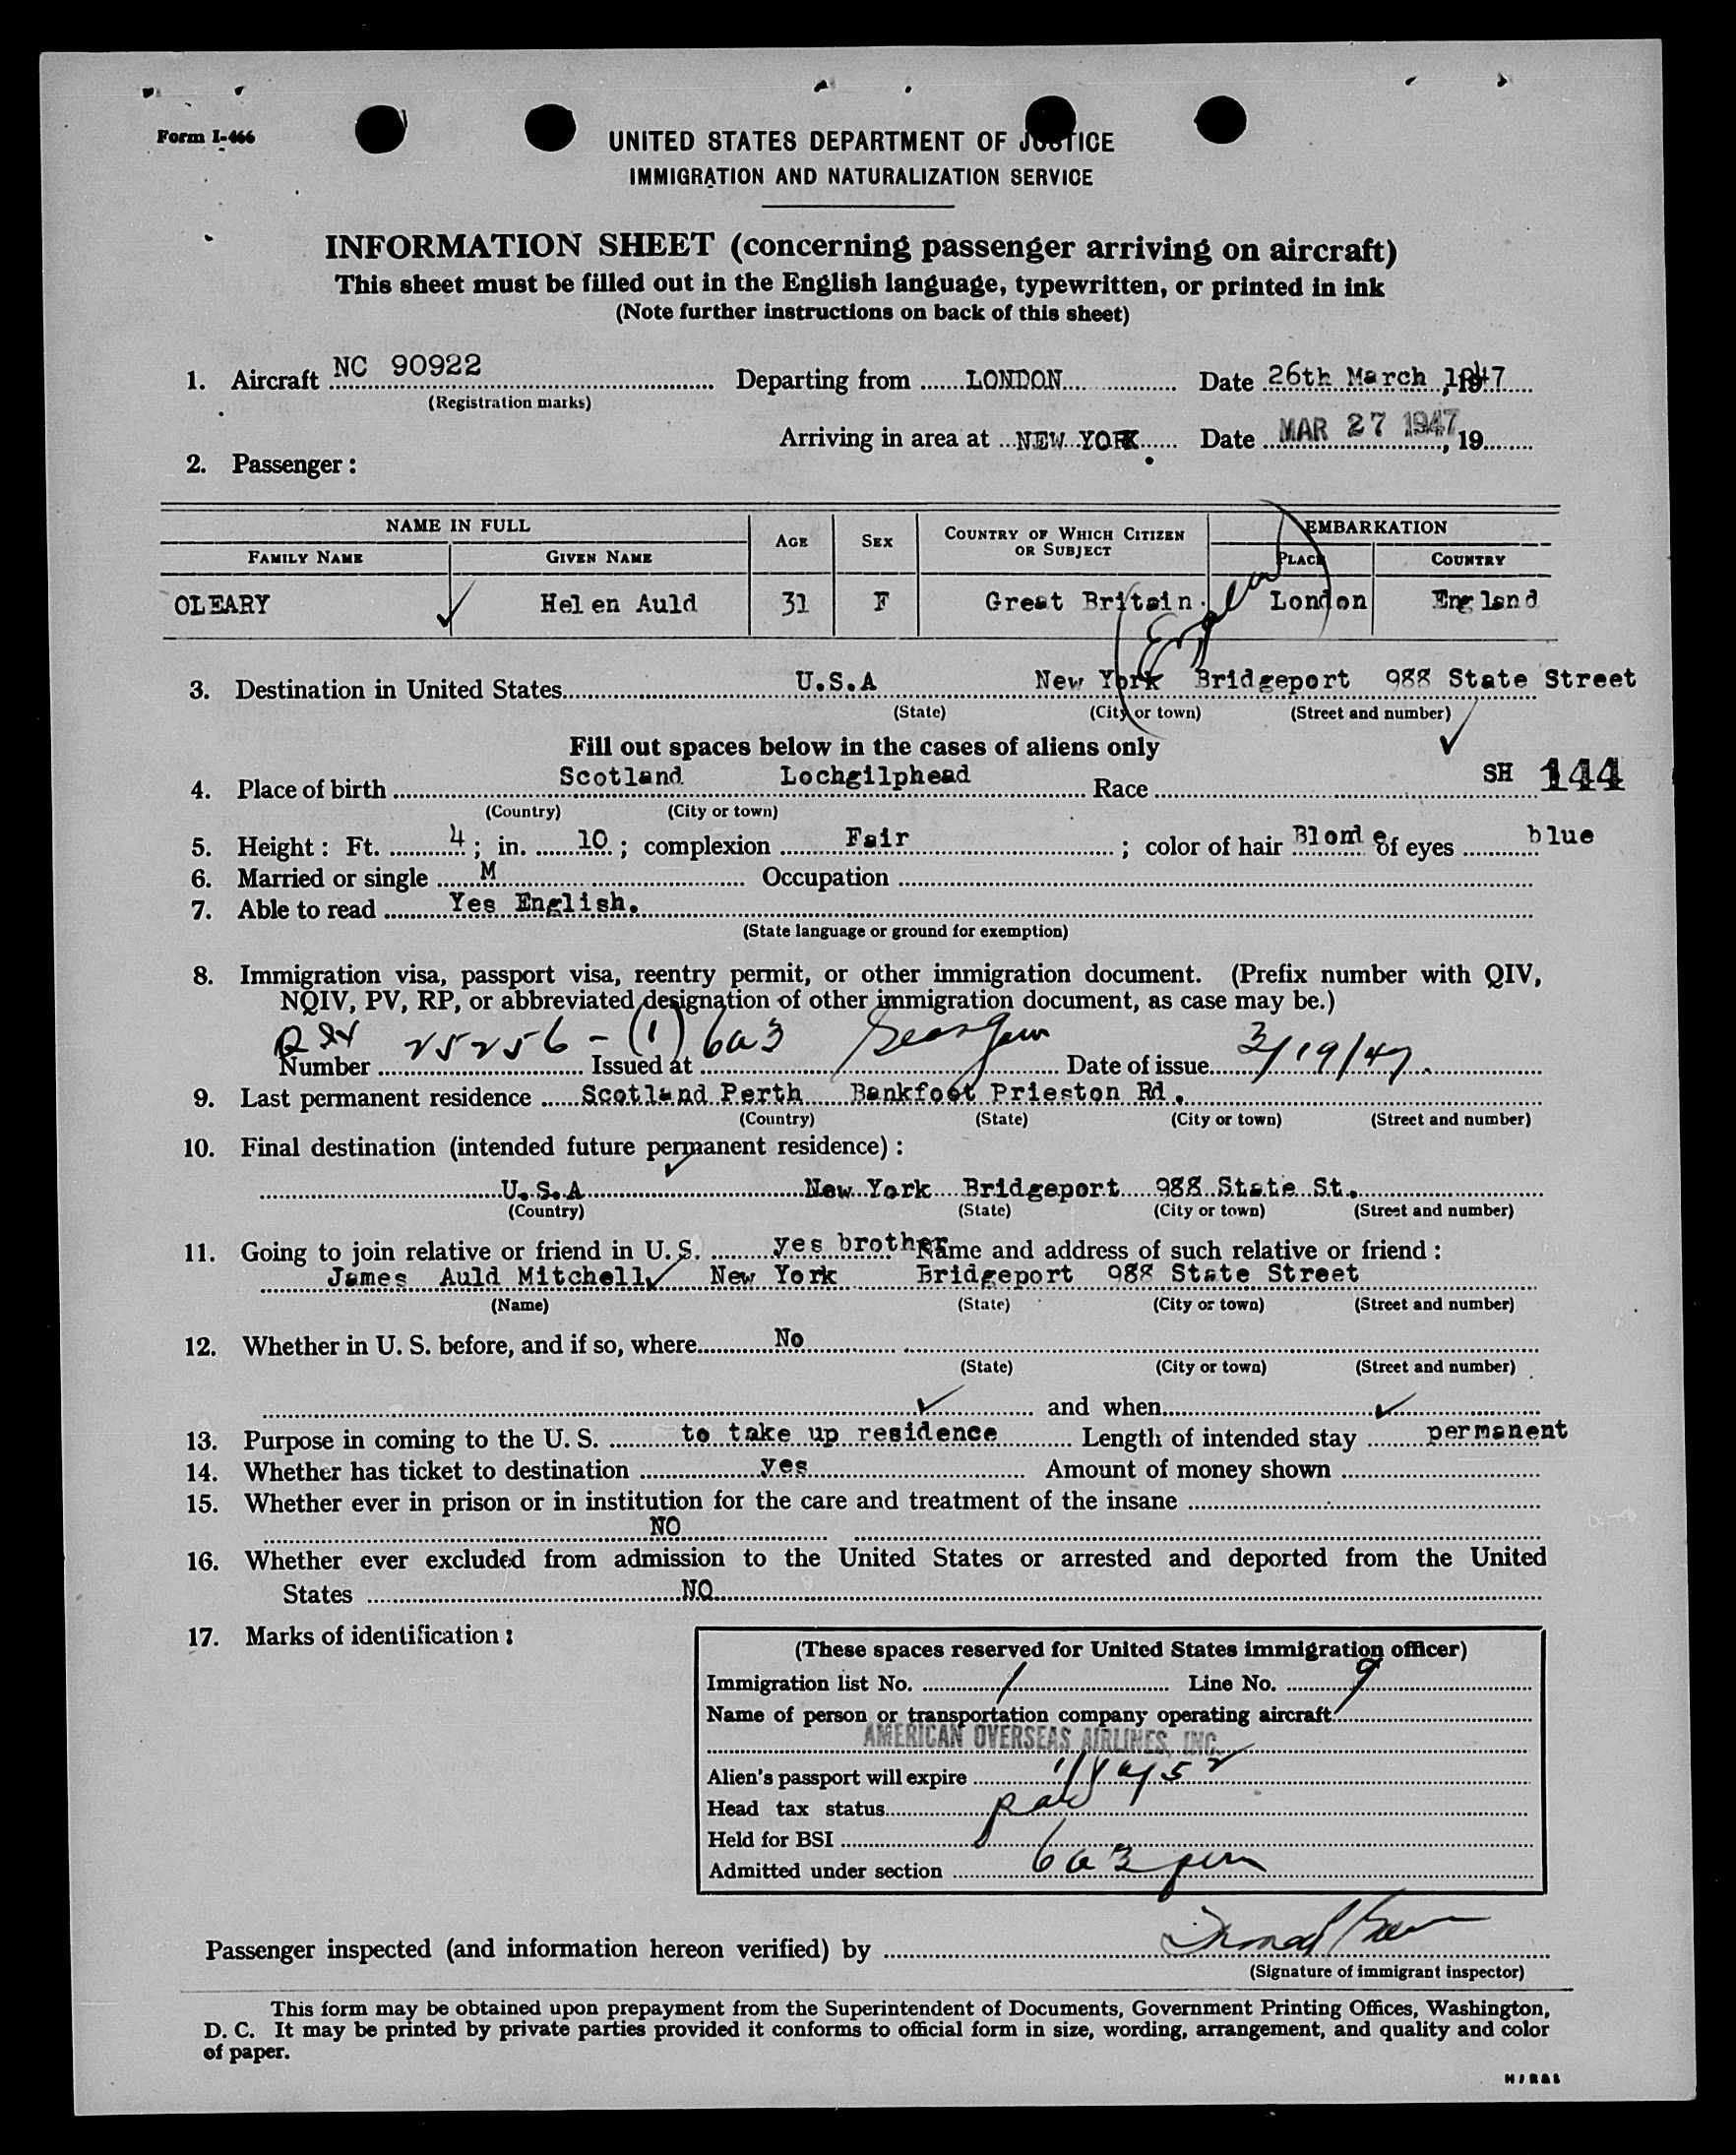 Form I-466
UNITED STATES DEPARTMENT OF JUSTICE
IMMIGRATION AND NATURALIZATION SERVICE
INFORMATION SHEET (concerning passenger arriving on aircraft)
This sheet must be filled out in the English language, typewritten, or printed in ink
(Note further instructions on back of this sheet)
1. Aircraft NC 90922 Departing from LONDON Date 26th March, 1947
(Registration marks)
Arriving in area at NEW YORK Date MAR 27 1947, 19
2. Passenger:
NAME IN FULL AGE SEX COUNTRY OF WHICH CITIZEN OR SUBJECT EMBARKATION
FAMILY NAME GIVEN NAME PLACE COUNTRY
OLEARY Helen Auld 31 F Great Britain London England
3. Destination in United States U.S.A New York Bridgeport 988 State Street
(State) (City or town) (Street and number)
Fill out spaces below in the cases of aliens only
4. Place of birth Scotland Lochgilphead Race SH 144
(Country) (City or town)
5. Height: Ft. 4; in. 10; complexion Fair; color of hair Blonde of eyes blue
6. Married or single M Occupation
7. Able to read Yes English.
(State language or ground for exemption)
8. Immigration visa, passport visa, reentry permit, or other immigration document. (Prefix number with QIV,
NQIV, PV, RP, or abbreviated designation of other immigration document, as case may be.)
Number 25256 - (1) 6a3 Issued at Date of issue 3/19/47
9. Last permanent residence Scotland Perth Bankfoot Prieston Rd.
(Country) (State) (City or town) (Street and number)
10. Final destination (intended future permanent residence):
U.S.A New York Bridgeport 988 State St.
(Country) (State) (City or town) (Street and number)
11. Going to join relative or friend in U. S. yes brother Name and address of such relative or friend:
James Auld Mitchell New York Bridgeport 988 State Street
(Name) (State) (City or town) (Street and number)
12. Whether in U. S. before, and if so, where No
(State) (City or town) (Street and number)
and when
13. Purpose in coming to the U. S. to take up residence Length of intended stay permanent
14. Whether has ticket to destination yes Amount of money shown
15. Whether ever in prison or in institution for the care and treatment of the insane
NO
16. Whether ever excluded from admission to the United States or arrested and deported from the United
States NO
17. Marks of identification:
(These spaces reserved for United States immigration officer)
Immigration list No. 1 Line No. 9
Name of person or transportation company operating aircraft
AMERICAN OVERSEAS AIRLINES, INC.
Alien's passport will expire
Head tax status paid
Held for BSI
Admitted under section 6a3 per
Passenger inspected (and information hereon verified) by
(Signature of immigrant inspector)
This form may be obtained upon prepayment from the Superintendent of Documents, Government Printing Offices, Washington,
D. C. It may be printed by private parties provided it conforms to official form in size, wording, arrangement, and quality and color
of paper.